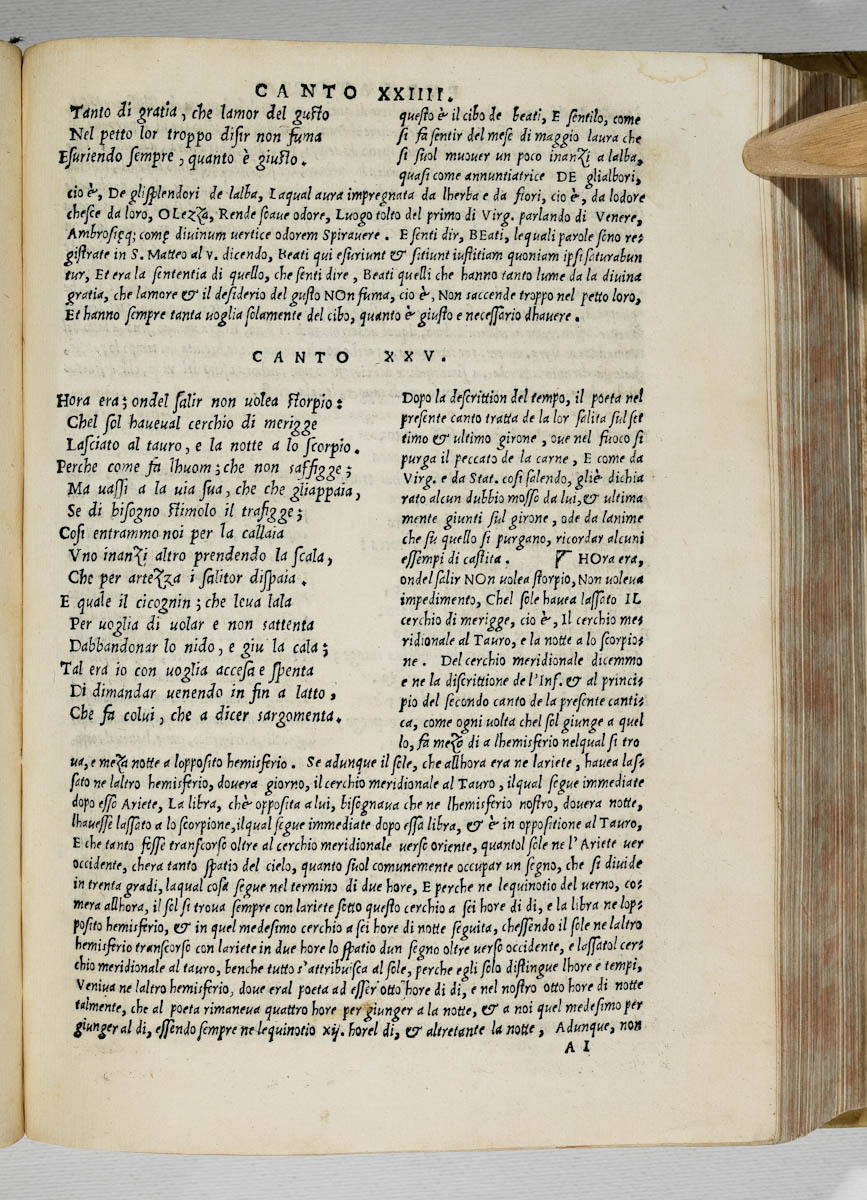 CANTO XXIIII.
Tanto di gratia, che lamor del gusto
Nel petto lor troppo disir non fuma
Esuriendo sempre, quanto è giusto.
questo è il cibo de beati, E sentilo, come
si fa sentir del mese di maggio laura che
si suol muouer un poco inanzi a lalba,
quasi come annuntiatrice DE glialbori,
cio è, De glisplendori de lalba, Laqual aura impregnata da lherba e da fiori, cio è, da lodore
chesce da loro, OLezza, Rende soaue odore, Luogo tolto del primo di Virg. parlando di Venere,
Ambrosięq; comę diuinum uertice odorem Spirauere. E senti dir, BEati, lequali parole sono re-
gistrate in S. Matteo al v. dicendo, Beati qui esuriunt & sitiunt iustitiam quoniam ipsi saturabun
tur, Et era la sententia di quello, che senti dire, Beati quelli che hanno tanto lume da la diuina
gratia, che lamore & il desiderio del gusto NOn fuma, cio è, Non saccende troppo nel petto loro,
Et hanno sempre tanta uoglia solamente del cibo, quanto è giusto e necessario dhauere.
CANTO XXV.
Hora era; ondel salir non uolea storpio:
Chel sol haueual cerchio di merigge
Lasciato al tauro, e la notte a lo scorpio.
Perche come fa lhuom; che non saffigge;
Ma uassi a la uia sua, che che gliappaia,
Se di bisogno stimolo il trafigge;
Cosi entrammo noi per la callaia
Vno inanzi altro prendendo la scala,
Che per artezza i salitor dispaia.
E quale il cicognin; che leua lala
Per uoglia di uolar e non sattenta
Dabbandonar lo nido, e giu la cala;
Tal era io con uoglia accesa e spenta
Di dimandar uenendo in fin a latto,
Che fa colui, che a dicer sargomenta.
Dopo la descrittion del tempo, il poeta nel
presente canto tratta de la lor salita sul set
timo & ultimo girone, oue nel fuoco si
purga il peccato de la carne, E come da
Virg. e da Stat. cosi salendo, gliè dichia
rato alcun dubbio mosso da lui, & ultima
mente giunti sul girone, ode da lanime
che su quello si purgano, ricordar alcuni
essempi di castita. HOra era,
ondel salir NOn uolea storpio, Non uoleua
impedimento, Chel sole hauea lassato IL
cerchio di merigge, cio è, Il cerchio me-
ridionale al Tauro, e la notte a lo scorpio-
ne. Del cerchio meridionale dicemmo
e ne la discrittione de l'Inf. & al princi-
pio del secondo canto de la presente canti-
ca, come ogni uolta chel sol giunge a quel
lo, fa mezo di a lhemisferio nelqual si tro
ua, e meza notte a lopposito hemisferio. Se adunque il sole, che allhora era ne lariete, hauea las-
sato ne laltro hemisferio, douera giorno, il cerchio meridionale al Tauro, ilqual segue immediate
dopo esso Ariete, La libra, chè opposita a lui, bisognaua che ne lhemisferio nostro, douera notte,
lhauesse lassato a lo scorpione, ilqual segue immediate dopo essa libra, & è in oppositione al Tauro,
E che tanto fosse transcorso oltre al cerchio meridionale uerso oriente, quantol sole ne l'Ariete uer
occidente, chera tanto spatio del cielo, quanto suol comunemente occupar un segno, che si diuide
in trenta gradi, laqual cosa segue nel termino di due hore, E perche ne lequinotio del uerno, co-
mera allhora, il sol si troua sempre con lariete sotto questo cerchio a sei hore di di, e la libra ne lop-
posito hemisferio, & in quel medesimo cerchio a sei hore di notte seguita, chessendo il sole ne laltro
hemisferio transcorso con lariete in due hore lo spatio dun segno oltre uerso occidente, e lassatol cer-
chio meridionale al tauro, benche tutto s'attribuisca al sole, perche egli solo distingue lhore e tempi,
Veniua ne laltro hemisferio, doue eral poeta ad esser otto hore di di, e nel nostro otto hore di notte
talmente, che al poeta rimaneua quattro hore per giunger a la notte, & a noi quel medesimo per
giunger al di, essendo sempre ne lequinotio xij. horel di, & altretante la notte, Adunque, non
A I